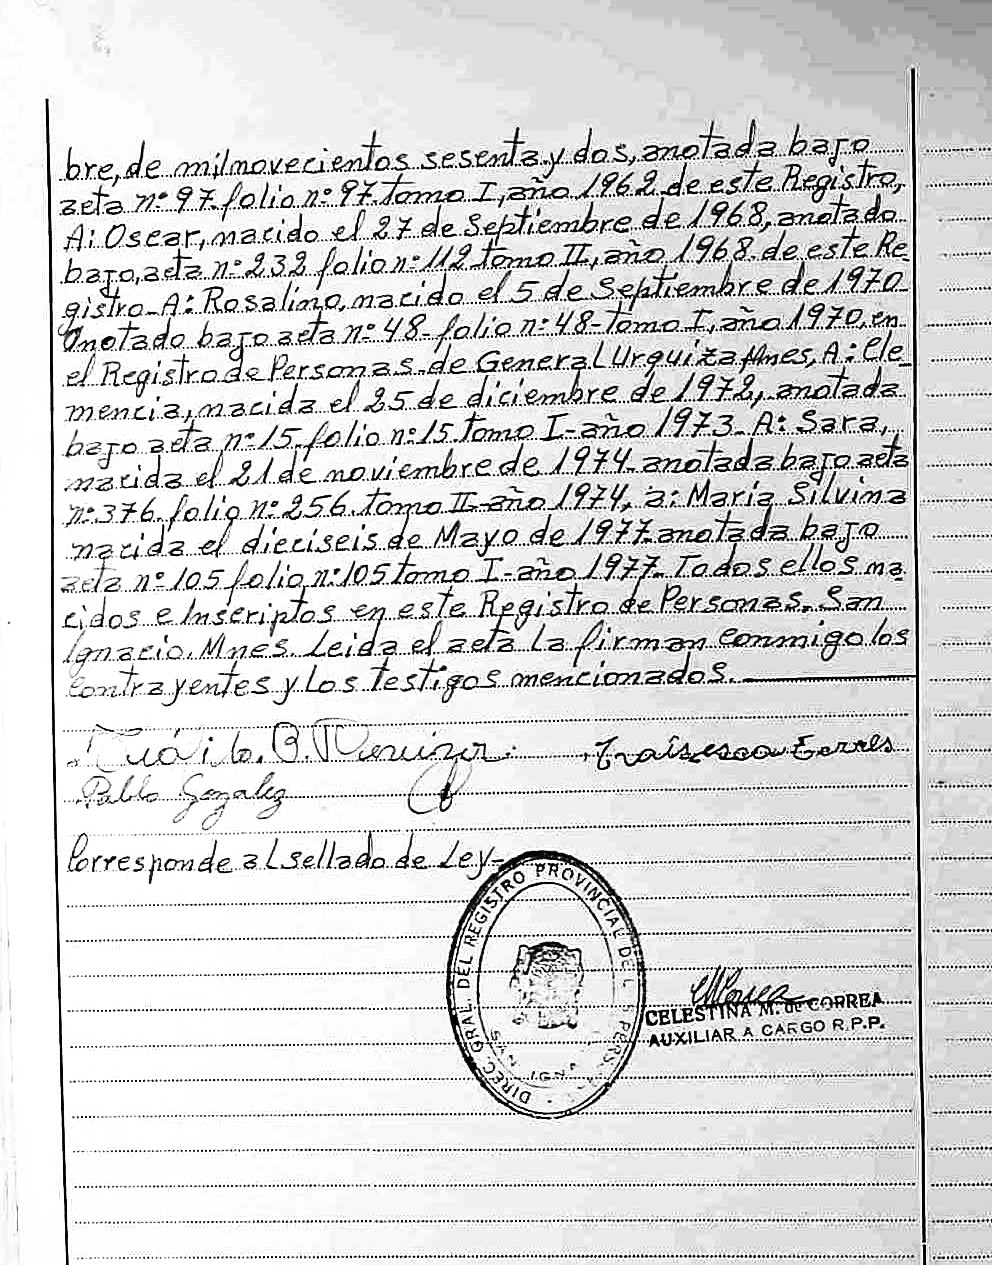 bre, de mil novecientos sesenta y dos, anotada bajo
acta nº 97. folio nº 97. tomo I, año 1962. de este Registro,
A: Oscar, nacido el 27 de Septiembre de 1968, anotado
bajo, acta nº 232 folio nº 112 tomo II, año 1968. de este Re
gistro. A: Rosalino, nacido el 5 de Septiembre de 1970
Anotado bajo acta nº 48- folio nº 48- tomo I, año 1970, en
el Registro de Personas. de General Urquiza Mnes, A: Cle
mencia, nacida el 25 de diciembre de 1972, anotada
bajo acta nº 15. folio nº 15. tomo I- año 1973. A: Sara,
nacida el 21 de noviembre de 1974. anotada bajo acta
nº 376. folio nº 256. tomo II- año 1974, a: Maria Silvina
nacida el dieciseis de Mayo de 1977. anotada bajo
acta nº 105 folio nº 105 tomo I- año 1977. Todos ellos na
cidos e Inscriptos en este Registro de Personas. San
Ignacio. Mnes. Leida el acta la firman conmigo los
contrayentes y los testigos mencionados.
Pablo Gonzalez
Corresponde al sellado de Ley-
DIREC. GRAL. DEL REGISTRO PROVINCIAL DE PERS.
SAN IGN
CELESTINA M. de CORREA
AUXILIAR A CARGO R.P.P.